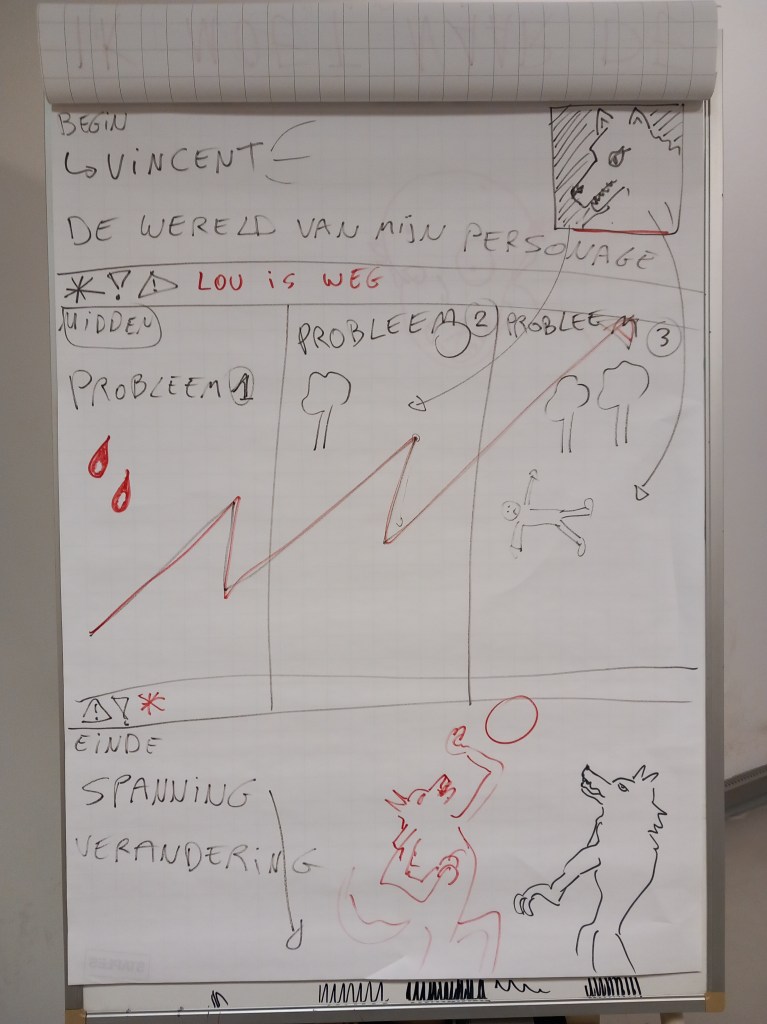 BEGIN
↳ VINCENT
DE WERELD VAN MIJN PERSONAGE
LOU is WEG
MIDDEN
PROBLEEM 1
PROBLEEM 2
PROBLEEM 3
EINDE
SPANNING
VERANDERING